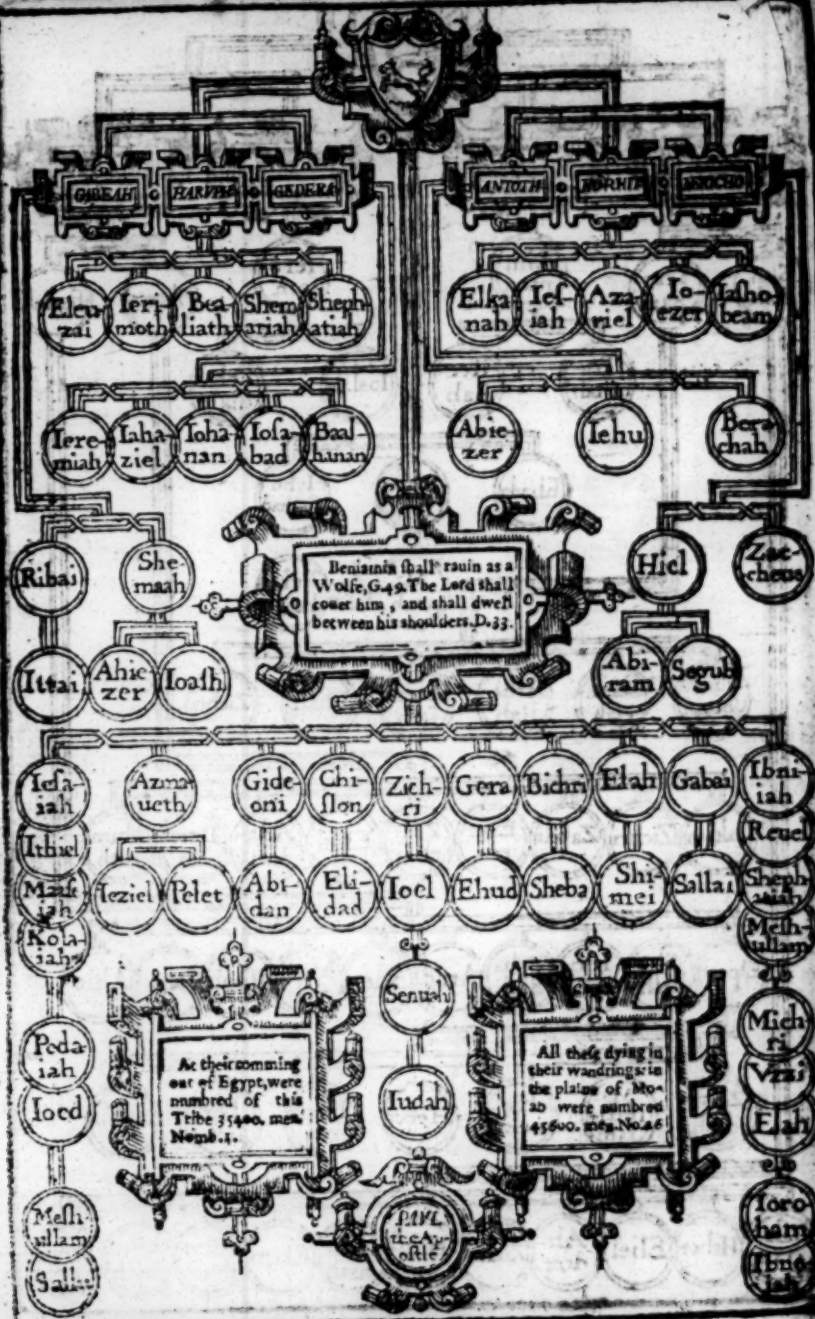 GIBEAH HARVPH GEDERA ANTOTH
Eleu-
zai
Ieri-
moth
Bea-
liath
Shem
ariah
Sheph-
atiah
Elka
nah
Ies-
iah
Aza-
riel
Io-
ezer
Iasho-
beam
Iere-
miah
Iaha-
ziel
Ioha-
nan
Iosa-
bad
Baal-
hanan
Abie-
zer
Iehu
Bera-
chah
Ribai
She-
maah
Hiel
Zac-
cheus
Beniamin shall rauin as a
Wolfe, G.49. The Lord shall
couer him, and shall dwell
between his shoulders. D.33.
Ittai
Ahie-
zer
Ioash
Abi-
ram
Segub
Iesa-
iah
Azma-
ueth
Gide-
oni
Chi-
slon
Zich-
ri
Gera
Bichri
Elah
Gabai
Ibni-
iah
Ithiel
Reuel
Maase
iah
Ieziel
Pelet
Abi-
dan
Eli-
dad
Ioel
Ehud
Sheba
Shi-
mei
Sallai
Sheph-
atiah
Kola-
iah
Mesh-
ullam
Senuah
Peda-
iah
Mich-
ri
At their comming
out of Egypt, were
numbred of this
Tribe 35400. men
Nomb.1.
All these dying in
their wandrings: in
the plains of Mo-
ab were numbred
45600. men. No.26
Vzzi
Ioed
Iudah
Elah
Mesh-
ullam
PAVL
the Ap-
ostle
Ioro-
ham
Sallu
Ibne-
iah